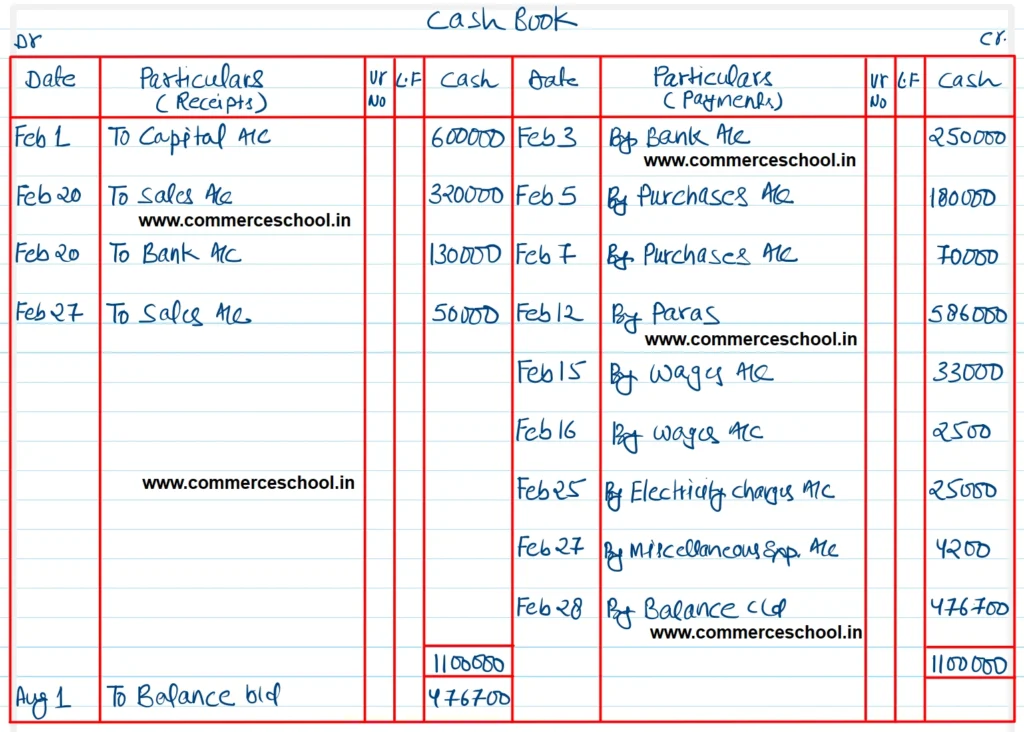 Cash Book
Dr
Cr.
Date Particulars (Receipts) Vr No L.F Cash Date Particulars (Payments) Vr No L.F Cash
Feb 1 To Capital A/c 600000 Feb 3 By Bank A/c 250000
www.commerceschool.in
Feb 20 To Sales A/c 320000 Feb 5 By Purchases A/c 180000
www.commerceschool.in
Feb 20 To Bank A/c 130000 Feb 7 By Purchases A/c 70000
Feb 27 To Sales A/c 50000 Feb 12 By Paras 586000
www.commerceschool.in
Feb 15 By Wages A/c 33000
Feb 16 By Wages A/c 2500
www.commerceschool.in
Feb 25 By Electricity charges A/c 25000
Feb 27 By Miscellaneous Exp. A/c 4200
Feb 28 By Balance c/d 476700
www.commerceschool.in
1100000 1100000
Aug 1 To Balance b/d 476700